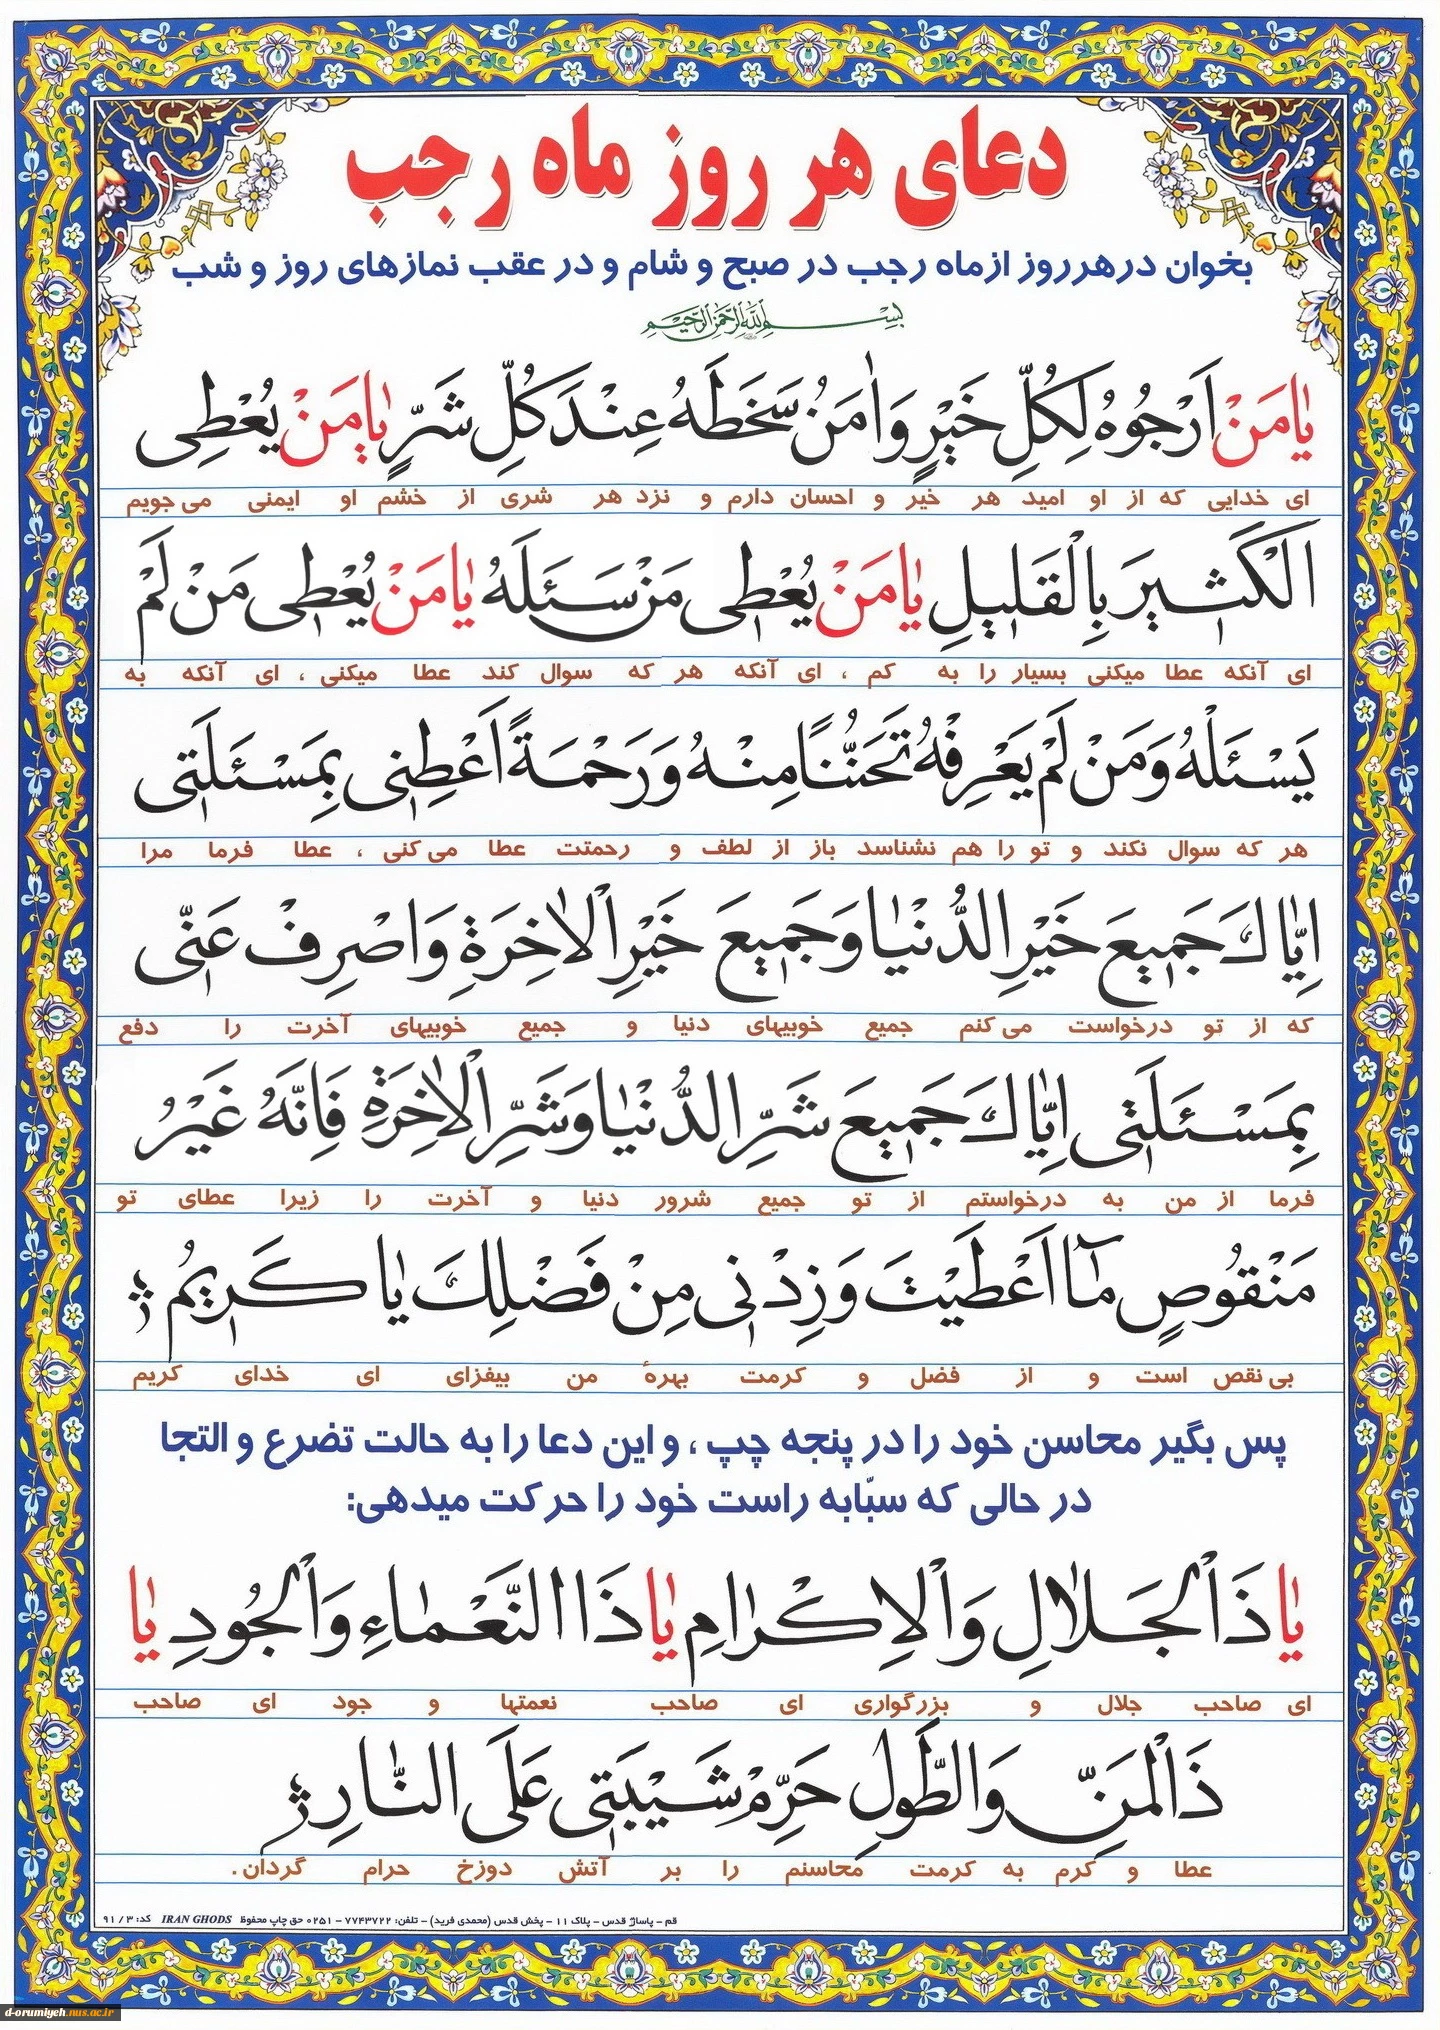 دعای هر روز ماه رجب
بخوان در هر روز از ماه رجب در صبح و شام و در عقب نمازهای روز و شب
بِسْمِ اللهِ الرَّحْمٰنِ الرَّحیمِ
یٰا مَنْ اَرْجُوهُ لِكُلِّ خَیْرٍ وَاٰمَنُ سَخَطَهُ عِنْدَ كُلِّ شَرٍّ یٰا مَنْ یُعْطِی
ای خدایی که از او امید هر خیر و احسان دارم و نزد هر شری از خشم او ایمنی می جویم
الْكَثیرَ بِالْقَلیلِ یٰا مَنْ یُعْطی مَنْ سَئَلَهُ یٰا مَنْ یُعْطی مَنْ لَمْ
ای آنکه عطا میکنی بسیار را به کم ، ای آنکه هر که سوال کند عطا میکنی ، ای آنکه به
یَسْئَلْهُ وَمَنْ لَمْ یَعْرِفْهُ تَحَنُّنًا مِنْهُ وَرَحْمَةً اَعْطِنی بِمَسْئَلَتی
هر که سوال نکند و تو را هم نشناسد باز از لطف و رحمتت عطا می کنی ، عطا فرما مرا
اِیّٰاكَ جَمیعَ خَیْرِ الدُّنْیٰا وَجَمیعَ خَیْرِ الْاٰخِرَةِ وَاصْرِفْ عَنّی
که از تو درخواست می کنم جمیع خوبیهای دنیا و جمیع خوبیهای آخرت را دفع
بِمَسْئَلَتی اِیّٰاكَ جَمیعَ شَرِّ الدُّنْیٰا وَشَرِّ الْاٰخِرَةِ فَاِنَّهُ غَیْرُ
فرما از من به درخواستم از تو جمیع شرور دنیا و آخرت را زیرا عطای تو
مَنْقُوصٍ مٰا اَعْطَیْتَ وَزِدْنی مِنْ فَضْلِكَ یٰا كَریمُ
بی نقص است و از فضل و کرمت بهرهٔ من بیفزای ای خدای کریم
پس بگیر محاسن خود را در پنجه چپ ، و این دعا را به حالت تضرع و التجا
در حالی که سبّابه راست خود را حرکت میدهی:
یٰا ذَا الْجَلٰالِ وَالْاِكْرٰامِ یٰا ذَا النَّعْمٰاءِ وَالْجُودِ یٰا
ای صاحب جلال و بزرگواری ای صاحب نعمتها و جود ای صاحب
ذَا الْمَنِّ وَالطَّوْلِ حَرِّمْ شَیْبَتی عَلَى النّٰارِ
عطا و کرم به کرمت محاسنم را بر آتش دوزخ حرام گردان.
قم - پاساژ قدس - پلاک ۱۱ - پخش قدس (محمدی فرید) - تلفن: ۷۷۴۳۷۲۲ - ۰۲۵۱ حق چاپ محفوظ IRAN GHODS کد: ۳ / ۹۱
d-orumiyeh.nus.ac.ir